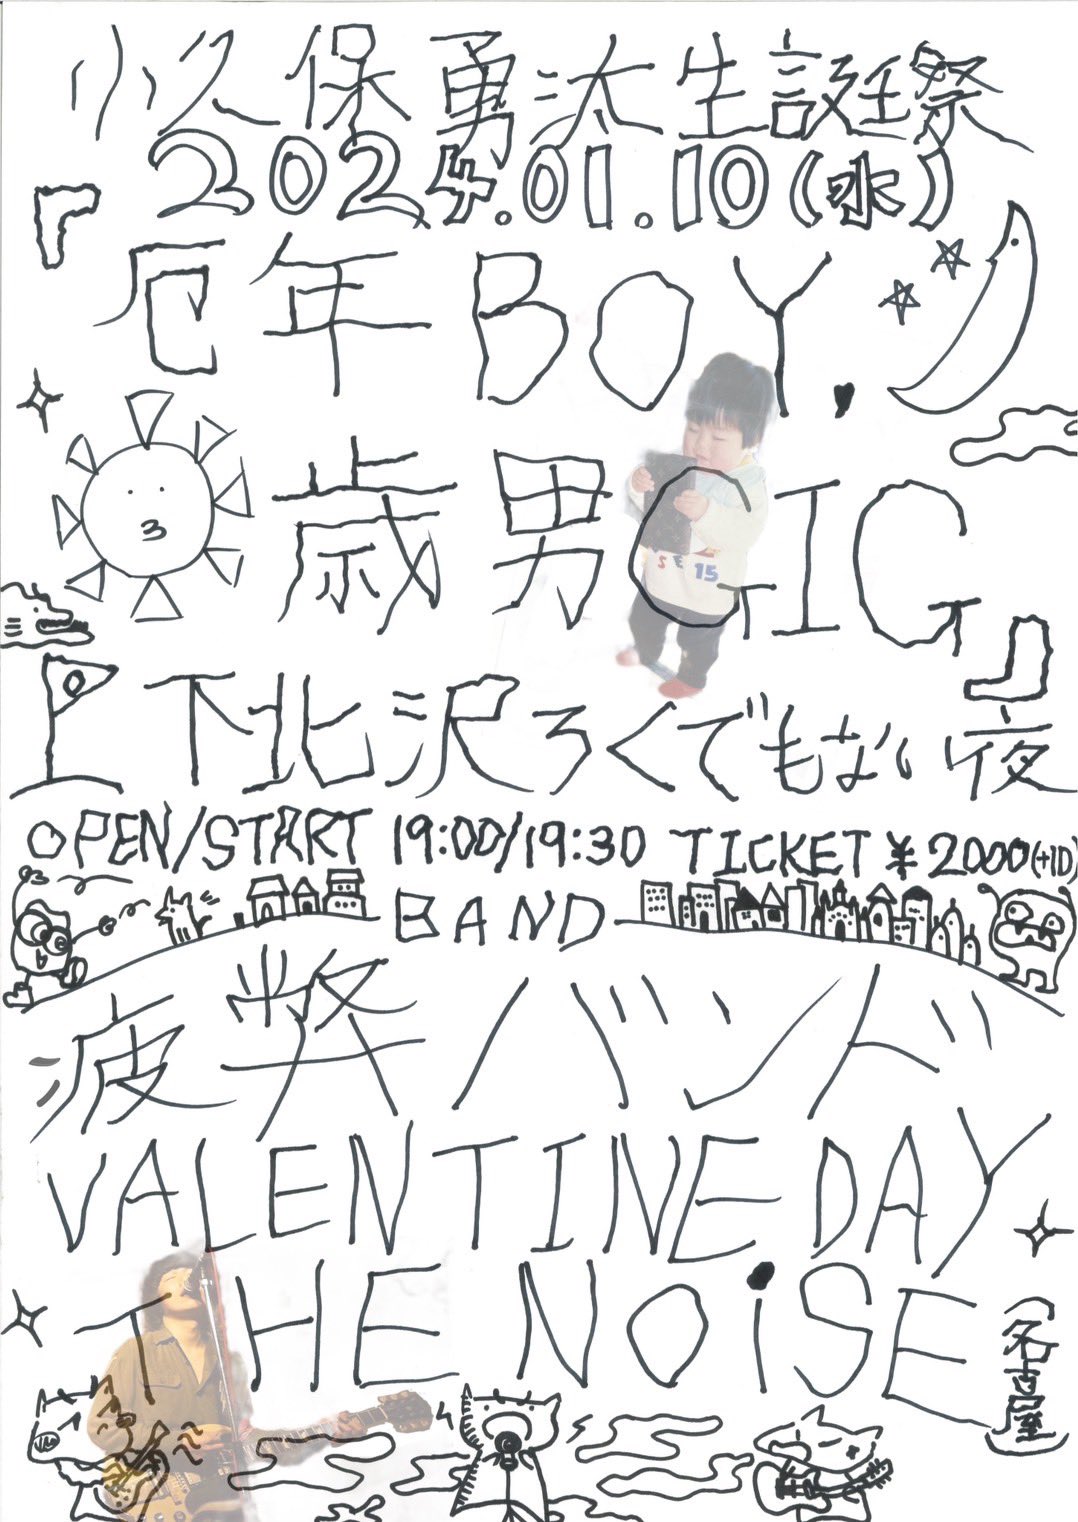 小久保勇太生誕祭
2024.01.10(水)
「厄年BOY,
歳男GIG」
下北沢ろくでもない夜
OPEN/START 19:00/19:30 TICKET ¥2000(+1D)
BAND
疲弊バンド
VALENTINE DAY
THE NOiSE(名古屋)
S E 15